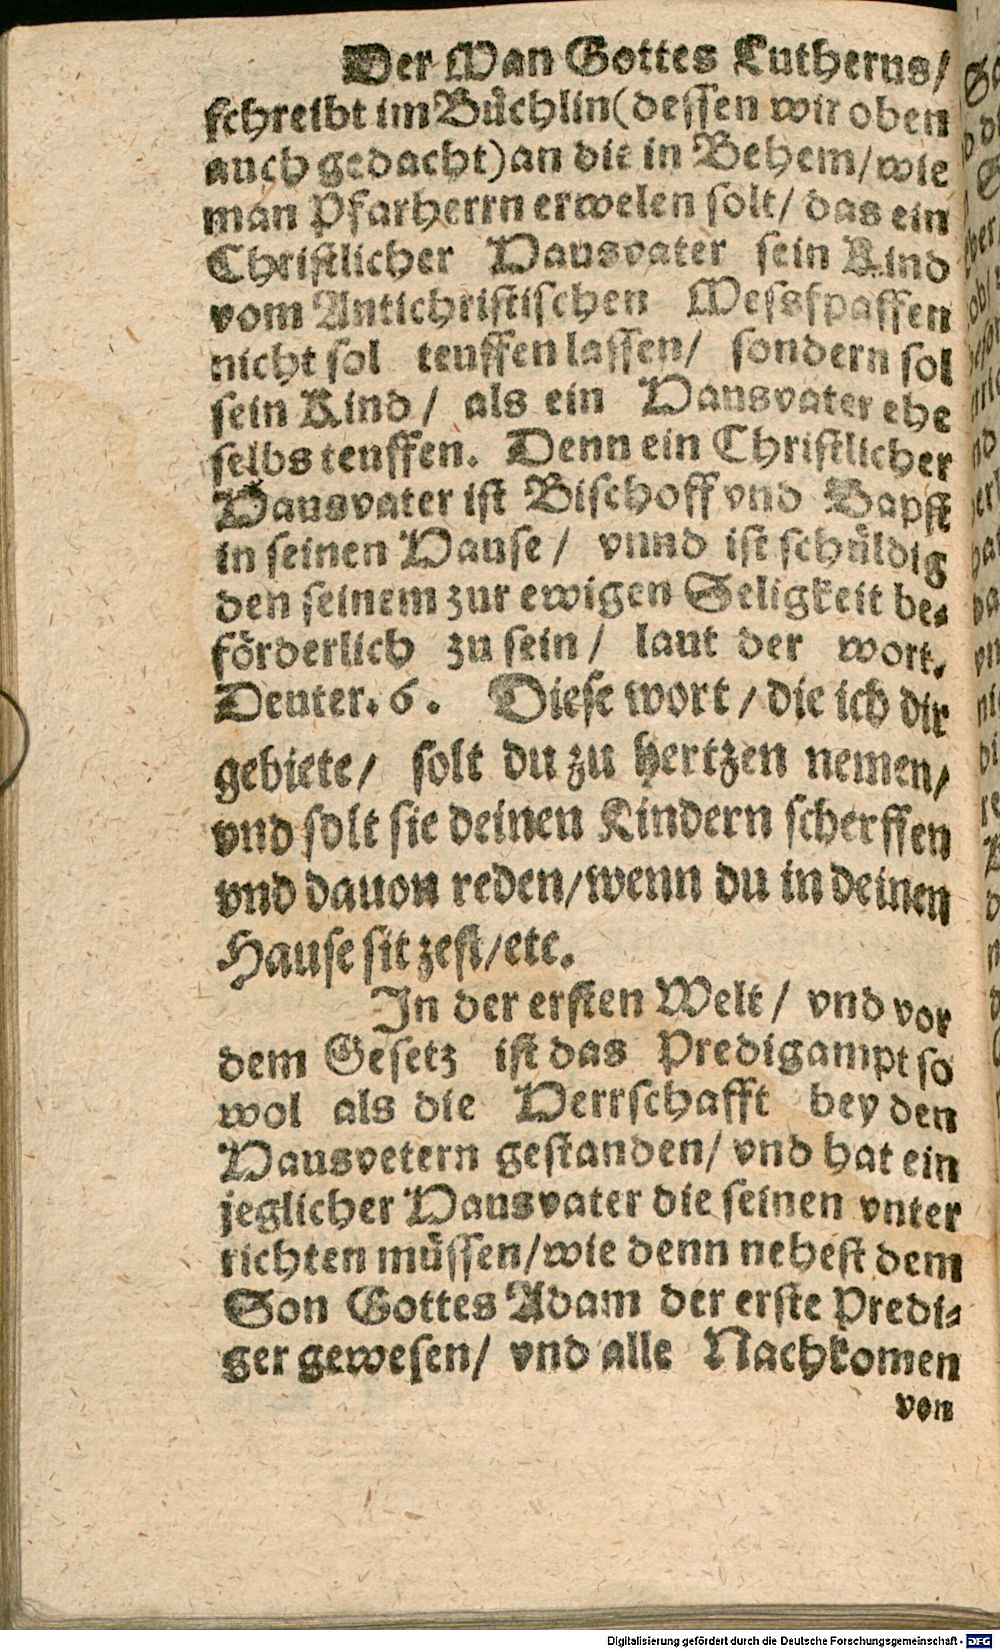 Der Man Gottes Lutherus/
schreibt im Büchlin (dessen wir oben
auch gedacht) an die in Behem/ wie
man Pfarherrn erwelen solt/ das ein
Christlicher Hausvater sein Kind
vom Antichristischen Messspaffen
nicht sol teuffen lassen/ sondern sol
sein Kind/ als ein Hausvater ehe
selbs teuffen. Denn ein Christlicher
Hausvater ist Bischoff vnd Bapst
in seinen Hause/ vnnd ist schüldig
den seinem zur ewigen Seligkeit be-
förderlich zu sein/ laut der wort.
Deuter. 6. Diese wort/ die ich dir
gebiete/ solt du zu hertzen nemen/
vnd solt sie deinen Kindern scherffen
vnd dauon reden/ wenn du in deinen
Hause sitzest/ etc.
In der ersten Welt/ vnd vor
dem Gesetz ist das Predigampt so
wol als die Herrschafft bey den
Hausvetern gestanden/ vnd hat ein
jeglicher Hausvater die seinen vnter
richten müssen/ wie denn nehest dem
Son Gottes Adam der erste Predi-
ger gewesen/ vnd alle Nachkomen
von
Digitalisierung gefördert durch die Deutsche Forschungsgemeinschaft - DFG